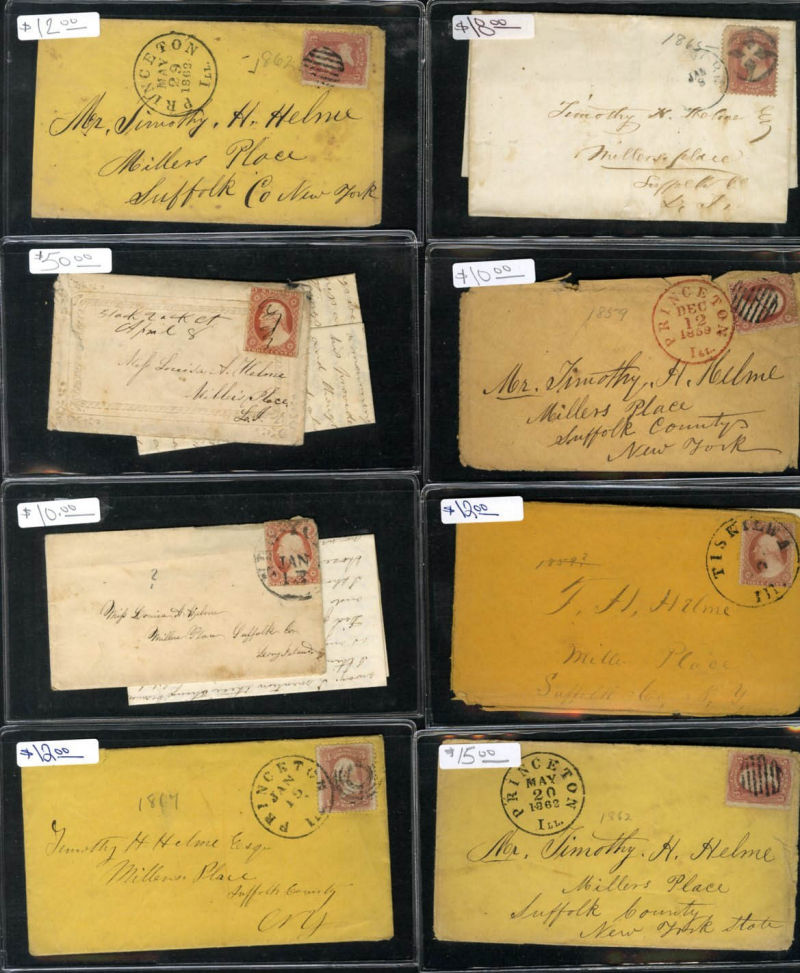 $12.00
PRINCETON ILL.
MAY
29
1862
-1862
Mr. Timothy. H. Helme
Millers Place
Suffolk Co New York
$18.00
1865
JAN
Timothy H. Helme Esq
Millers place
Suffolk Co
L. I.
$50.00
April 8
Miss Louisa A. Helme
Millers Place
L.I.
$10.00
1859
PRINCETON
DEC
12
1859
ILL.
Mr. Timothy. H. Helme
Millers Place
Suffolk County
New York
$10.00
?
JAN
13
Miss Louisa A Helme
Millers Place Suffolk Co
Long Island
$12.00
TISKILWA
Ill.
1859?
T. H. Helme
Miller Place
Suffolk Co. N. Y
$12.00
PRINCETON Ill
JAN
19
1867
Timothy H Helme Esq.
Millers Place
Suffolk County
NY
$15.00
PRINCETON
MAY
20
1862
ILL.
1862
Mr. Timothy. H. Helme
Millers Place
Suffolk County
New York State